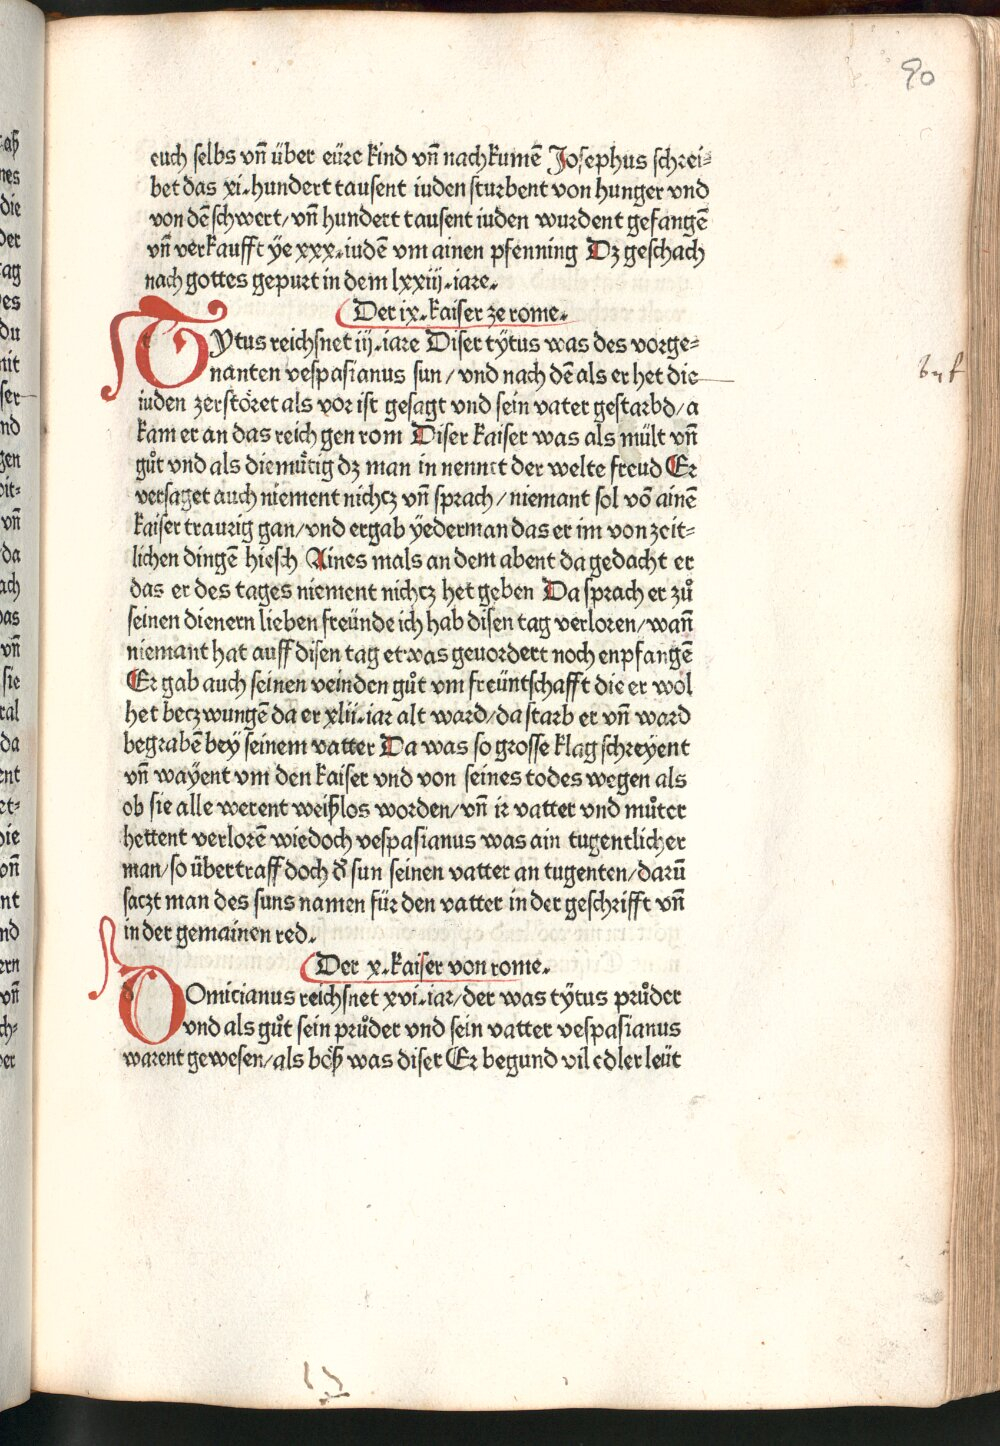 80
euch selbs vñ über eüre kind vñ nachkumē Josephus schrei⸗
bet das xi.hundert tausent iuden sturbent von hunger vnd
von dē schwert/vñ hundert tausent iuden wurdent gefangē
vñ verkaufft ÿe xxx.iudē vm ainen pfenning Dz geschach
nach gottes gepurt in dem lxxiij.iare.
Der ix.kaiser ze rome.
TYtus reichsnet iij.iare Diser tÿtus was des vorge⸗
nanten vespasianus sun/vnd nach dē als er het die
iuden zerstöret als vor ist gesagt vnd sein vater gestarbd/a
kam er an das reich gen rom Diser kaiser was als mült vñ
gůt vnd als diemütig dz man in nennet der welte freud Er
versaget auch niement nichcz vñ sprach/niemant sol vō ainē
kaiser traurig gan/vnd ergab ÿederman das er im von zeit⸗
lichen dingē hiesch Aines mals an dem abent da gedacht er
das er des tages niement nichcz het geben Da sprach er zů
seinen dienern lieben freünde ich hab disen tag verloren/wañ
niemant hat auff disen tag etwas geuordert noch enpfangē
Er gab auch seinen veinden gůt vm freüntschafft die er wol
het beczwungē da er xlii.iar alt ward/da starb er vñ ward
begrabē beÿ seinem vatter Da was so grosse klag schreyent
vñ waÿent vm den kaiser vnd von seines todes wegen als
ob sie alle werent weißlos worden/vñ ir vatter vnd můter
hettent verlorē wiedoch vespasianus was ain tugentlicher
man/so übertraff doch d̄ sun seinen vatter an tugenten/darū
saczt man des suns namen für den vatter in der geschrifft vñ
in der gemainen red.
Der x.kaiser von rome.
DOmicianus reichsnet xvi.iar/der was tÿtus průder
vnd als gůt sein průder vnd sein vatter vespasianus
warent gewesen/als böß was diser Er begund vil edler leüt